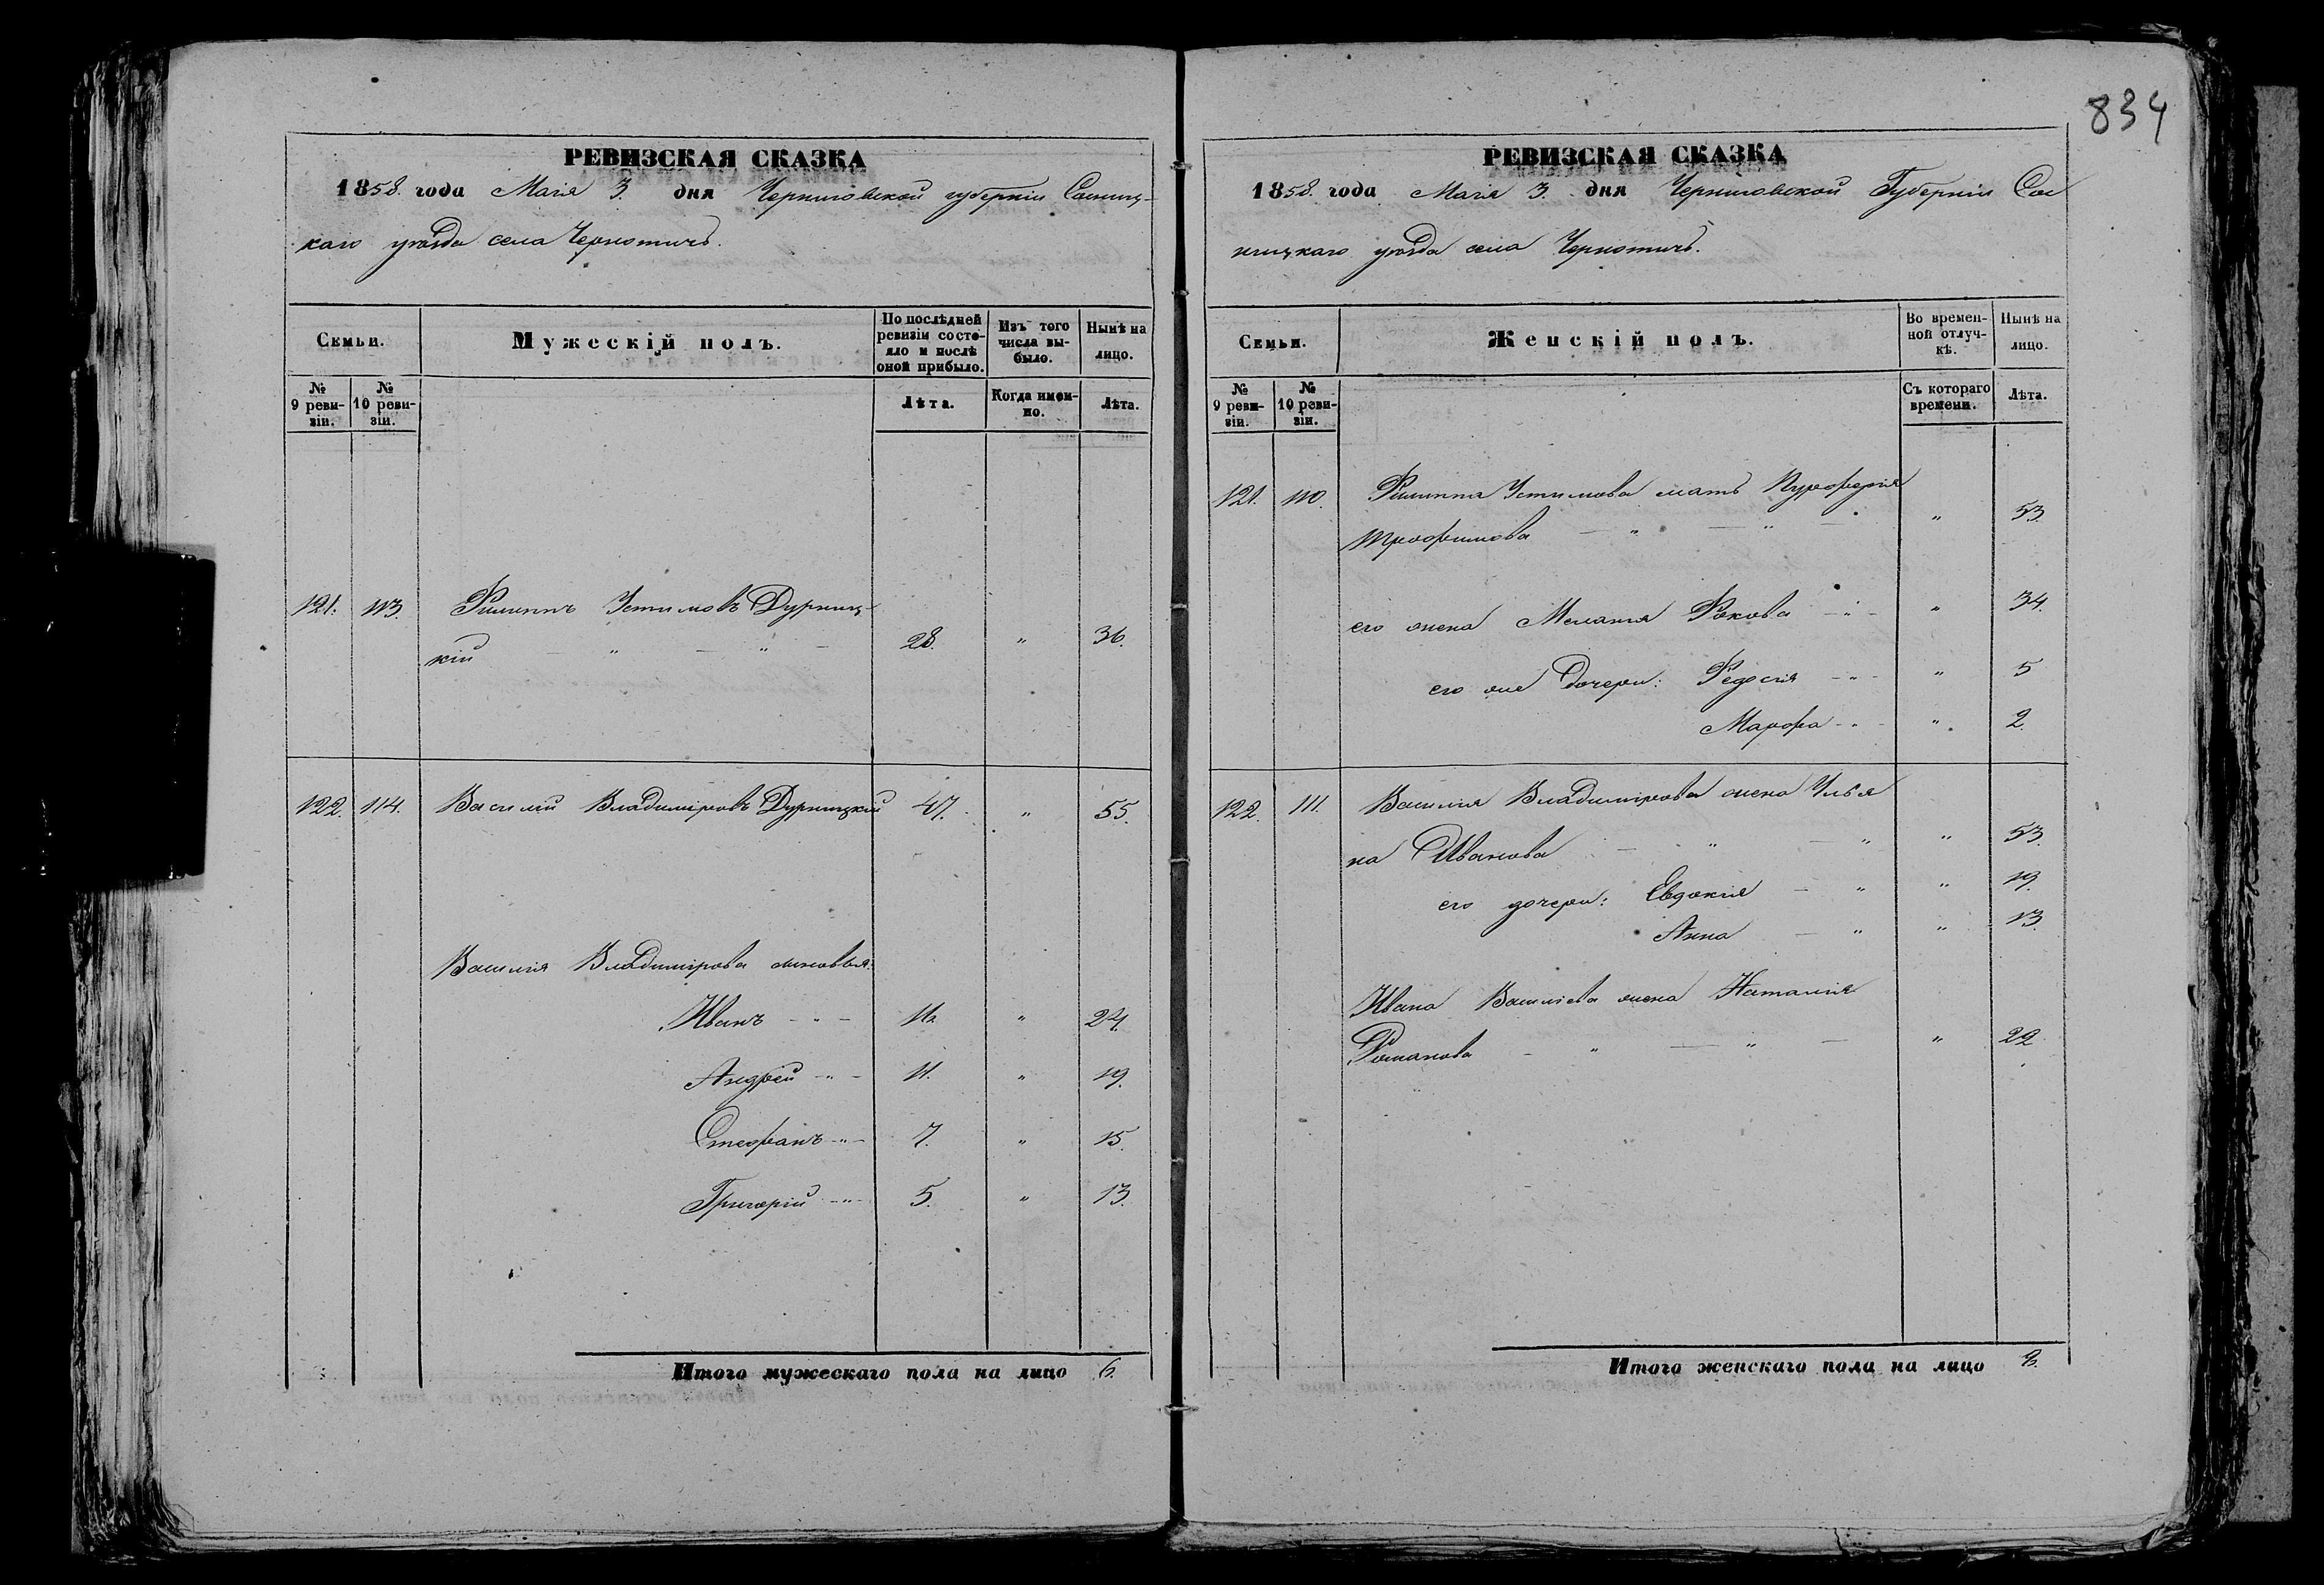 834
РЕВИЗСКАЯ СКАЗКА
1858. года Маія 3. дня Черниговской губерніи Сосниц-
каго уѣзда села Чернотичъ.
Семьи. Мужескій полъ. По послѣдней ревизіи состояло и послѣ оной прибыло. Изъ того числа выбыло. Нынѣ на лицо.
№ 9 реви-зіи. № 10 реви-зіи. Лѣта. Когда имен-но. Лѣта.
121. 113. Филиппъ Устимовъ Дурниц-
кій — " — " — 28. " 36.
122. 114. Василій Владиміровъ Дурницкій 47. " 55.
Василія Владимірова сыновья:
Иванъ - " - 16. " 24.
Андрей - " - 11. " 19.
Стефанъ - " - 7. " 15.
Григорій - " - 5. " 13.
Итого мужескаго пола на лицо 6.
РЕВИЗСКАЯ СКАЗКА
1858. года Маія 3. дня Черниговской Губерніи Сос
ницкаго уѣзда села Чернотичъ.
Семьи. Женскій полъ. Во времен-ной отлуч-кѣ. Нынѣ на лицо.
№ 9 реви-зіи. № 10 реви-зіи. Съ котораго времени. Лѣта.
121. 110. Филиппа Устимова мать
Трофимова — " — " — " 53.
его жена Меланія Фокова - " - " 34.
его же дочери: Федосія - " - " 5
Марфа - " - " 2.
122. 111. Василія Владимірова жена Улья
на Иванова — " — " " 53.
его дочери: Евдокія — " " 19.
Анна — " " 13.
Ивана Василіева жена Наталія
Романова — " — " — " 22
Итого женскаго пола на лицо 8.